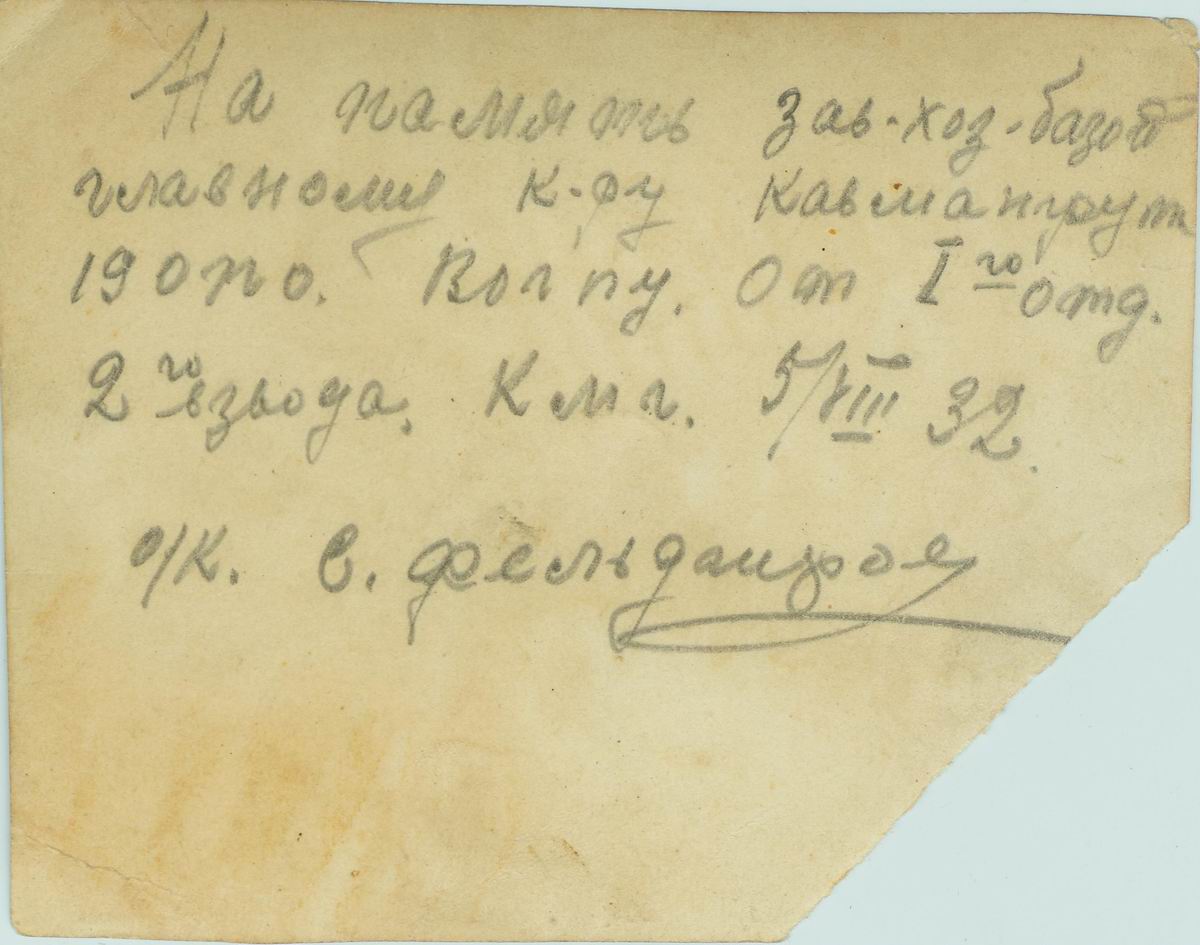 На память зав-хоз-базой
главному к-ру Кавмангруп
19 опо. Вогпу. От I го отд.
2 го взвода. Кмг. 5/VIII 32.
о/к. С.